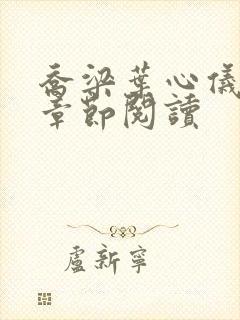 喬梁葉心儀
章節閱讀
盧新寧